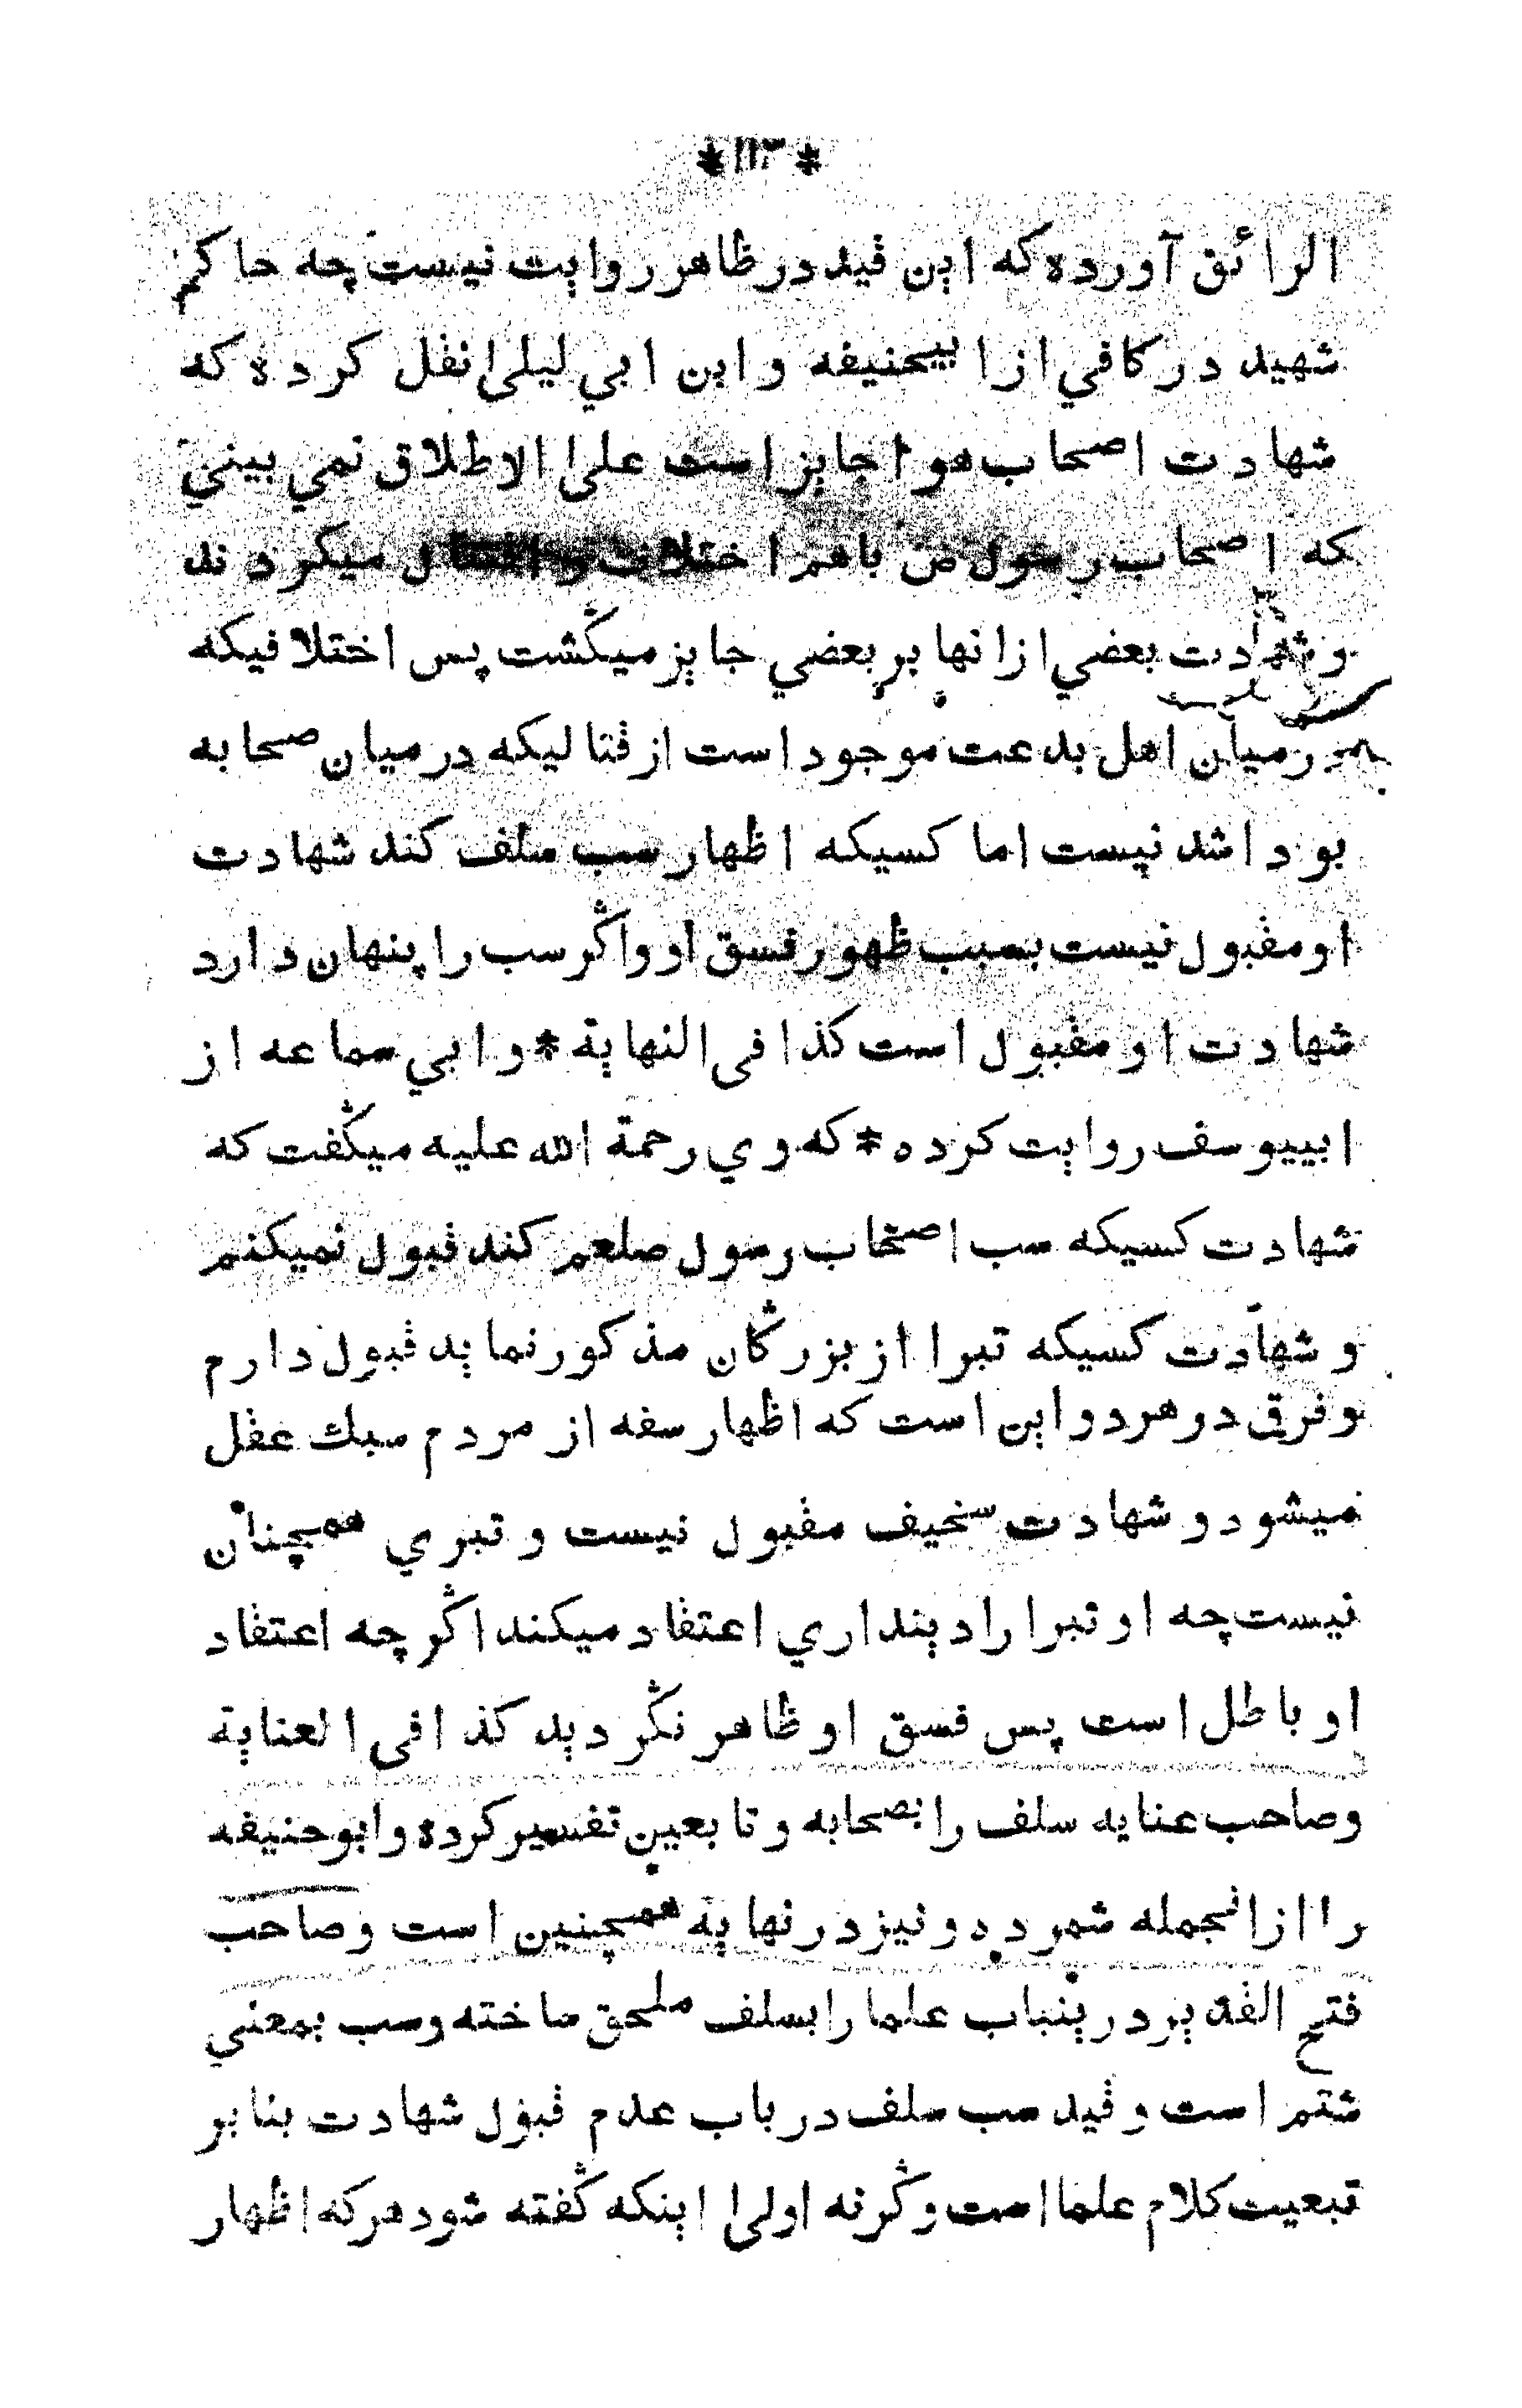 * ١١٣ *
الرائق آورده که این قید در ظاهر روایت نیست چه حاکم
شهید در کافي از ابیحنیفه و ابن ابي لیلیٰ نقل کرده که
شهادت اصحاب هوا جایز است علیٰ الاطلاق نمي بیني
که اصحاب رسول ص باهم اختلاف و اقتتال میکردند
و شهادت بعضي از انها بر بعضي جایز میگشت پس اختلافیکه
در میان اهل بدعت موجود است از قتالیکه در میان صحابه
بود اشد نیست اما کسیکه اظهار سب سلف کند شهادت
او مقبول نیست بسبب ظهور فسق او و اگر سب را پنهان دارد
شهادت او مقبول است کذا فی النهایة * و ابي سماعه از
ابییوسف روایت کرده * که وي رحمة الله علیه میگفت که
شهادت کسیکه سب اصحاب رسول صلعم کند قبول نمیکنم
و شهادت کسیکه تبرا از بزرگان مذکور نماید قبول دارم
و فرق در هر دو این است که اظهار سفه از مردم سبك عقل
میشود و شهادت سخیف مقبول نیست و تبري همچنان
نیست چه او تبرا را دینداري اعتقاد میکند اگرچه اعتقاد
او باطل است پس فسق او ظاهر نگردید کذا فی العنایة
وصاحب عنایه سلف را بصحابه و تابعین تفسیر کرده و ابوحنیفه
را ازانجمله شمرده و نیز در نهایة همچنین است وصاحب
فتح القدیر درینباب علما را بسلف ملحق ساخته وسب بمعني
شتم است و قید سب سلف در باب عدم قبول شهادت بنابر
تبعیت کلام علما است وگرنه اولیٰ اینکه گفته شود هرکه اظهار